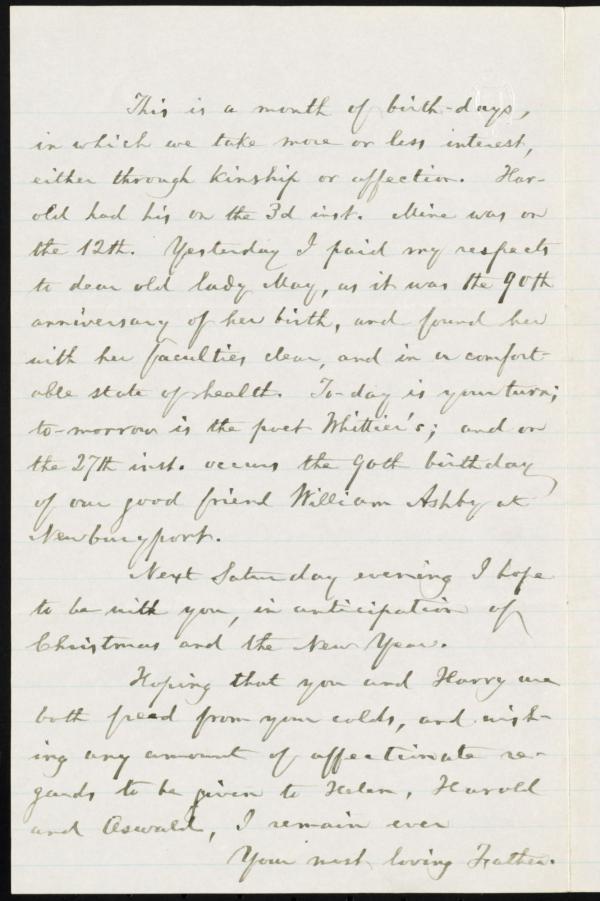 This is a month of birth-days,
in which we take more or less interest,
either through kinship or affection. Har-
old had his on the 3d inst. Mine was on
the 12th. Yesterday I paid my respects
to dear old lady May, as it was the 90th
anniversary of her birth, and found her
with her faculties clear, and in a comfort-
able state of health. To-day is your turn;
to-morrow is the poet Whittier's; and on
the 27th inst. occurs the 90th birthday
of our good friend William Ashby at
Newburyport.
Next Saturday evening I hope
to be with you, in anticipation of
Christmas and the New Year.
Hoping that you and Harry are
both freed from your colds, and wish-
ing any amount of affectionate re-
gards to be given to Helen, Harold
and Oswald, I remain ever
Your most loving Father.